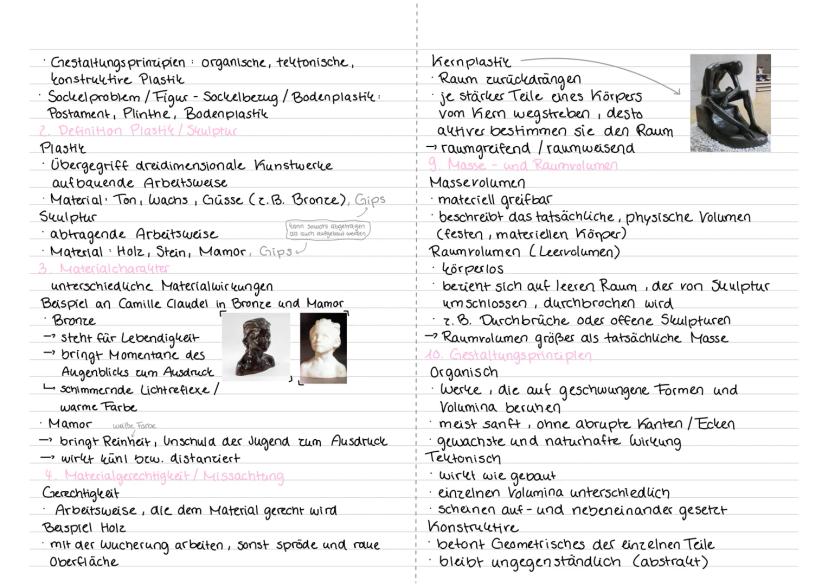 · Gestaltungsprinzipien : organische, tektonische,
konstruktive Plastik
· Sockelproblem / Figur - Sockelbezug / Bodenplastik :
Postament, Plinthe, Bodenplastik
2. Definition Plastik / Skulptur
Plastik
· Übergegriff dreidimensionale Kunstwerke
aufbauende Arbeitsweise
· Material : Ton, Wachs, Güsse (z.B. Bronze), Gips
Skulptur
kann sowohl abgetragen
als auch aufgebaut werden
· abtragende Arbeitsweise
· Material : Holz, Stein, Mamor, Gips
3. Materialcharakter
unterschiedliche Materialwirkungen
Beispiel an Camille Claudel in Bronze und Mamor
· Bronze
→ steht für Lebendigkeit
→ bringt Momentane des
Augenblicks zum Ausdruck
↳ schimmernde Lichtreflexe /
warme Farbe
· Mamor weiße Farbe
→ bringt Reinheit, Unschuld der Jugend zum Ausdruck
→ wirkt kühl bzw. distanziert
4. Materialgerechtigkeit / Missachtung
Gerechtigkeit
· Arbeitsweise, die dem Material gerecht wird
Beispiel Holz
· mit der Wucherung arbeiten, sonst spröde und raue
Oberfläche
Kernplastik
· Raum zurückdrängen
· je stärker Teile eines Körpers
vom Kern wegstreben, desto
aktiver bestimmen sie den Raum
→ raumgreifend / raumweisend
9. Masse - und Raumvolumen
Massevolumen
· materiell greifbar
· beschreibt das tatsächliche, physische Volumen
(festen, materiellen Körper)
Raumvolumen (Leervolumen)
· körperlos
· bezieht sich auf leeren Raum, der von Skulptur
umschlossen, durchbrochen wird
· z.B. Durchbrüche oder offene Skulpturen
→ Raumvolumen größer als tatsächliche Masse
10. Gestaltungsprinzipien
Organisch
· Werke, die auf geschwungene Formen und
Volumina beruhen
· meist sanft, ohne abrupte Kanten / Ecken
· gewachste und naturhafte Wirkung
Tektonisch
· wirkt wie gebaut
· einzelnen Volumina unterschiedlich
· scheinen auf- und nebeneinander gesetzt
Konstruktive
· betont Geometrisches der einzelnen Teile
· bleibt ungegenständlich (abstrakt)